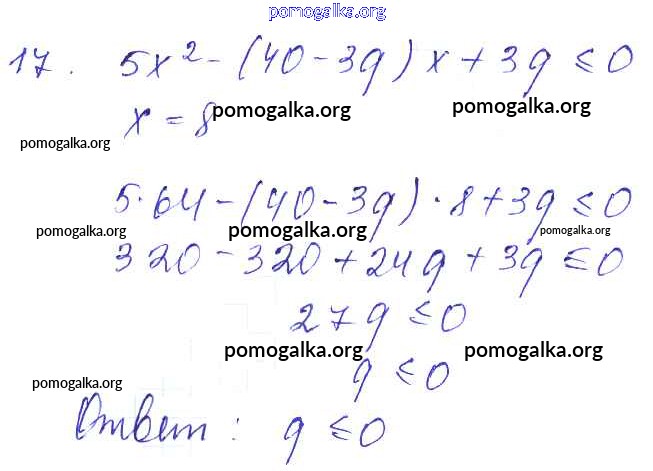 pomogalka.org
17. 5x² - (40 - 3q)x + 3q ≤ 0
x = 8 pomogalka.org pomogalka.org
pomogalka.org
5·64 - (40 - 3q)·8 + 3q ≤ 0
pomogalka.org pomogalka.org pomogalka.org
320 - 320 + 24q + 3q ≤ 0
27q ≤ 0
pomogalka.org pomogalka.org
q ≤ 0
pomogalka.org
Ответ: q ≤ 0